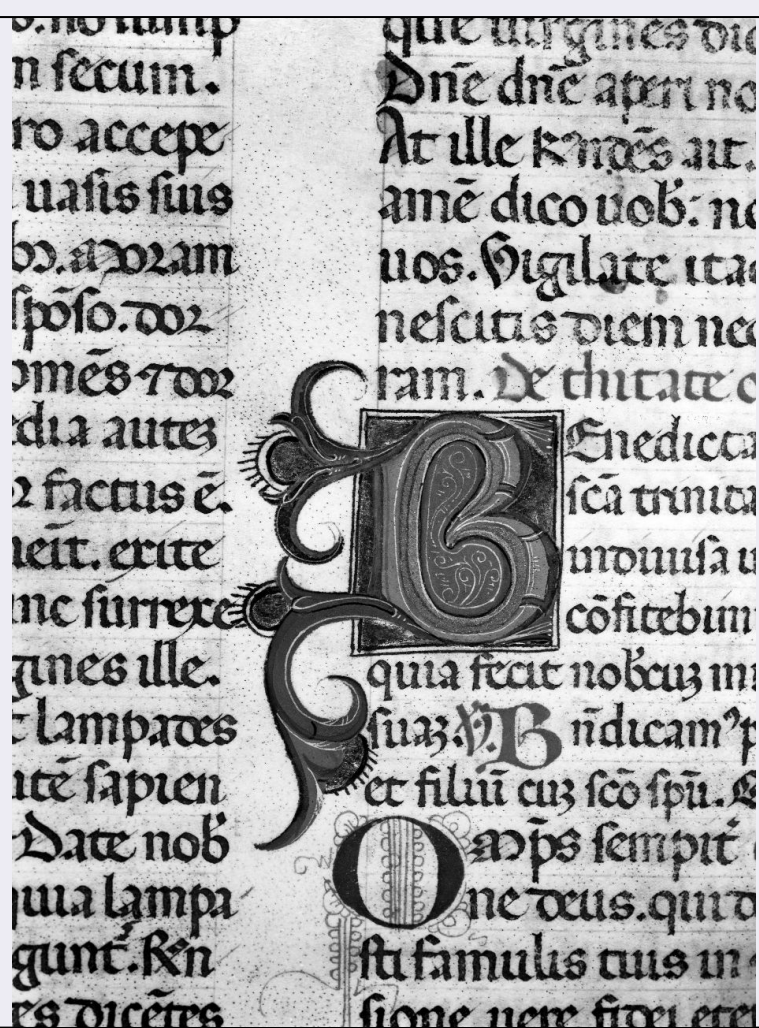 n secum.
ro accepe
uasis suis
spōso. dor
omēs ⁊ dor
edia auteȝ
r factus ē.
exite
nc surrexe
gines ille.
lampades
sapien
Date nob̄
quia lampa
gunt̄.
es dicētes
que uirgines
Dn̄e dn̄e aperi no
At ille r̄ndēs ait.
amē dico uob̄: no
uos. Vigilate ita
nescitis diem nec
ram. De t̄nitate
Benedicta
sc̄a trinita
indiuisa u
cōfitebim
quia fecit nobcuȝ mi
suaȝ. V̄. Bn̄dicamꝰ p
et filiū cuȝ sc̄o sp̄u.
Om̄ps sempit̄
ne deus. qui d
sti famulis tuis in
sione uere fidei ete